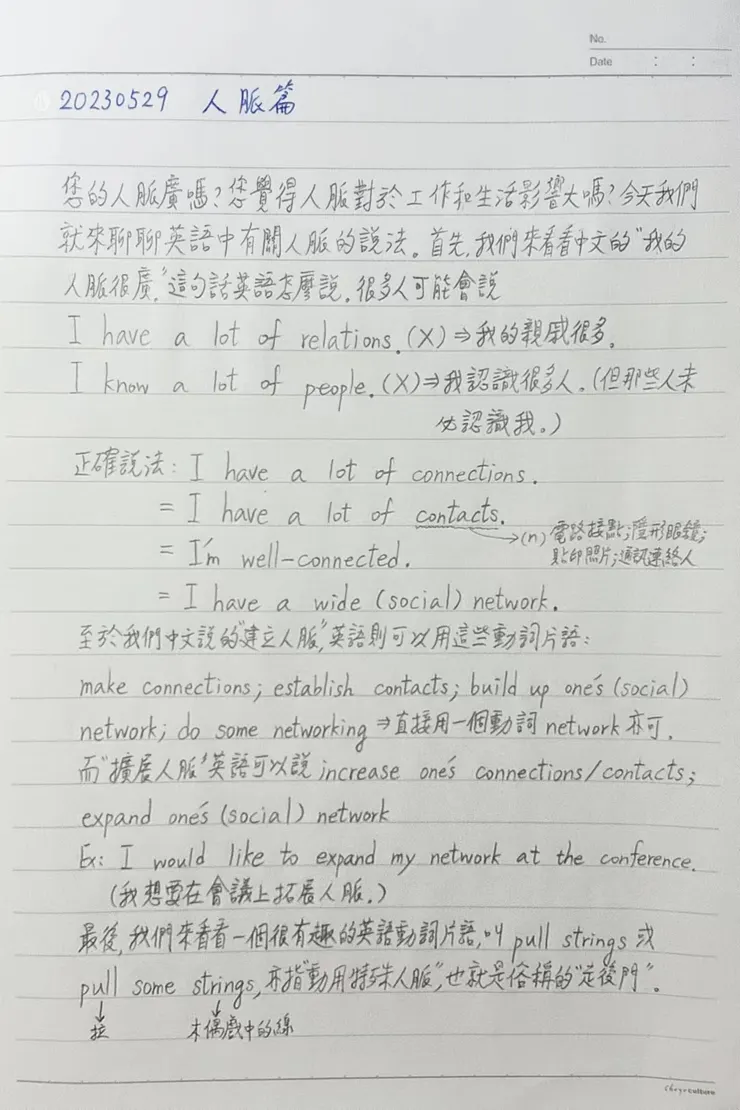 No.
Date : :
20230529 人脈篇
您的人脈廣嗎?您覺得人脈對於工作和生活影響大嗎?今天我們
就來聊聊英語中有關人脈的說法。首先,我們來看看中文的"我的
人脈很廣"這句話英語怎麼說,很多人可能會說
I have a lot of relations.(X)⇒我的親戚很多.
I know a lot of people.(X)⇒我認識很多人。(但那些人未
必認識我。)
正確說法: I have a lot of connections.
= I have a lot of contacts.
→(n) 電路接點;隱形眼鏡;
貼印照片;通訊連絡人
= I'm well-connected.
= I have a wide (social) network.
至於我們中文說的"建立人脈",英語則可以用這些動詞片語:
make connections; establish contacts; build up one's (social)
network; do some networking ⇒直接用一個動詞 network 亦可.
而"擴展人脈"英語可以說 increase one's connections/contacts;
expand one's (social) network
Ex: I would like to expand my network at the conference.
(我想要在會議上拓展人脈.)
最後,我們來看看一個很有趣的英語動詞片語,叫 pull strings 或
pull some strings,亦指"動用特殊人脈",也就是俗稱的"走後門"。
↓ ↓
拉 木偶戲中的線